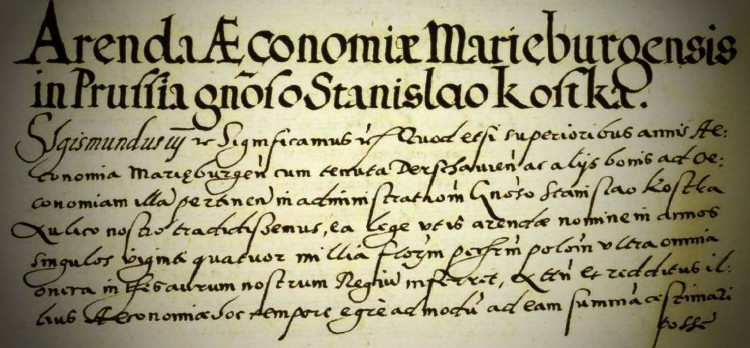 Arenda Æconomiæ Marieburgensis
in Prussia gñoso Stanislao kostka.
Sigismundus iij ꝛc Significamus ꝛc Quod etsi superioribus annis Ae-
conomia Marięburgeñ cum tenuta Derschavieñ ac alijs bonis ad Oe-
conomiam illa pertineñ in administrationem Gnoso Stanislao Kostka
Aulico nostro tradidissemus, ea lege ut is arendæ nomine in annos
singulos viginti quatuor millia florm polom ultra omnia
onera in thesaurum nostrum Regium inferret, et redditus il-
lius Aeconomiæ hoc tempore egre admodu ad eam summa æstimari
posse